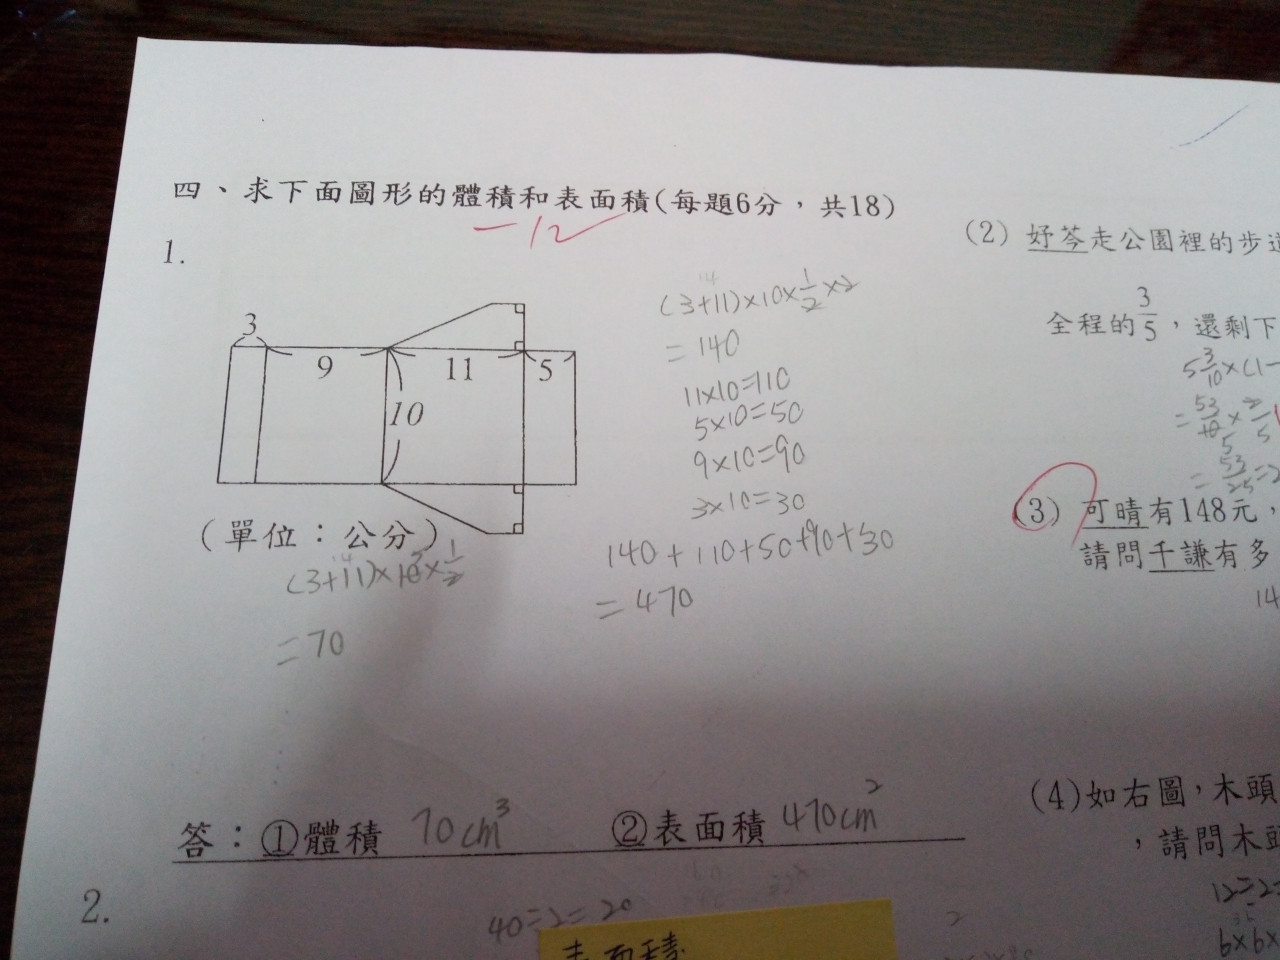 四、求下面圖形的體積和表面積(每題6分，共18)
-12
1.
3
9
11
5
10
(單位：公分)
(3+11)×10×1/2
=70
14
(3+11)×10×1/2×2
=140
11×10=110
5×10=50
9×10=90
3×10=30
140+110+50+90+30
=470
答：①體積 70cm³ ②表面積 470cm²
2.
40÷2=20
表面積
(2) 妤芩走公園裡的步
全程的3/5，還剩下
5 3/10×(1-
(3) 可晴有148元，
請問千謙有多
14
(4)如右圖，木頭
，請問木頭
12÷2=
6×6×